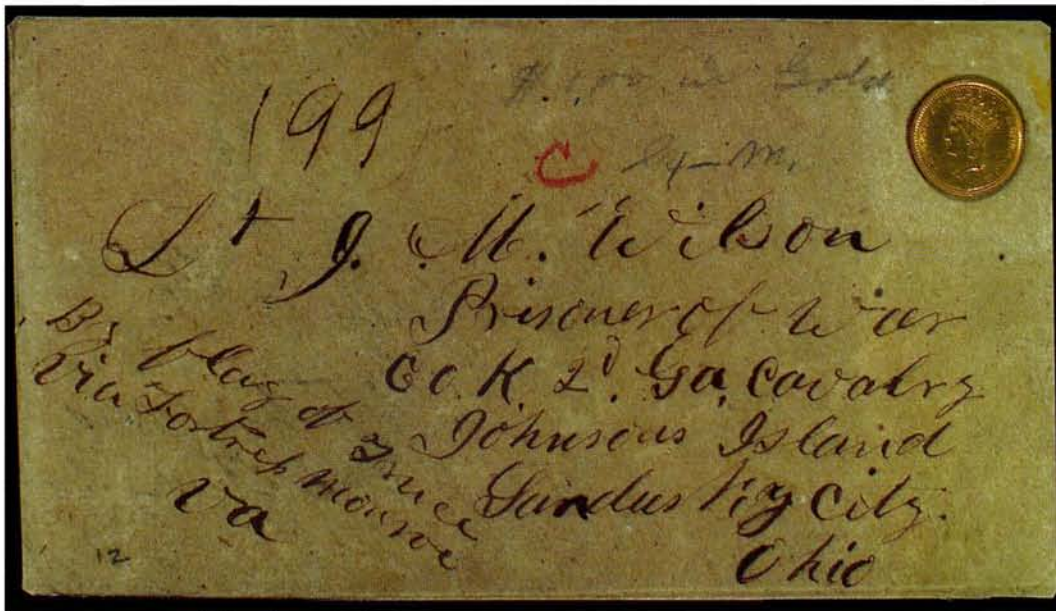 $1.00 in Gold
199
C
Lt J. M. Wilson
Prisoner of War
Co. K. 2d. Ga. Cavalry
Johnsons Island
Sandusky City.
Ohio
By flag of Truce
Via Fortress Monroe
Va
12